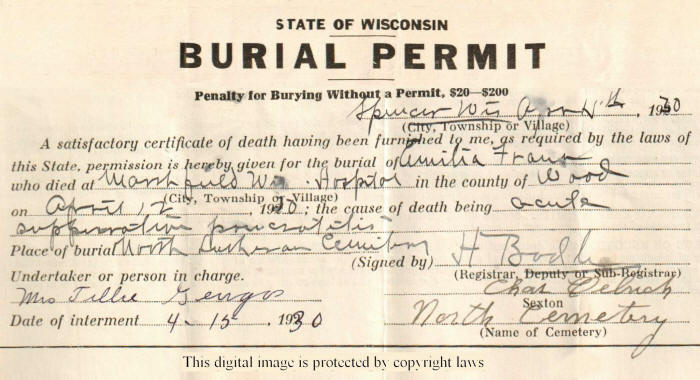 STATE OF WISCONSIN
BURIAL PERMIT
Penalty for Burying Without a Permit, $20—$200
Spencer Wis 1930
(City, Township or Village)
A satisfactory certificate of death having been furnished to me, as required by the laws of
this State, permission is hereby given for the burial of Amilia
who died at Marshfield Wis. Hospital in the county of Wood
(City, Township or Village)
on April 12, 1930; the cause of death being acute
suppurative pancreatitis
Place of burial North Lutheran Cemetery
(Signed by) H
(Registrar, Deputy or Sub-Registrar)
Undertaker or person in charge.
Mrs Tillie
Sexton
Date of interment 4-15, 1930
North Cemetery
(Name of Cemetery)
This digital image is protected by copyright laws